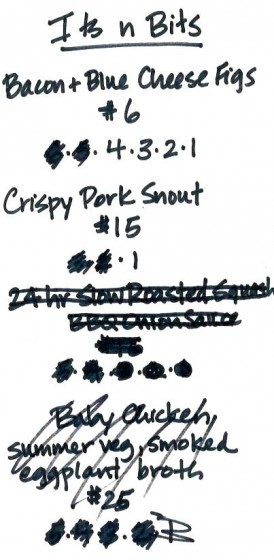 Its n Bits
Bacon + Blue Cheese Figs
#6
4.3.2.1
Crispy Pork Snout
#15
.1
24 hr Slow Roasted Squash
BBQ Onion Sauce
Baby Chicken,
summer veg, smoked
eggplant, broth
#25